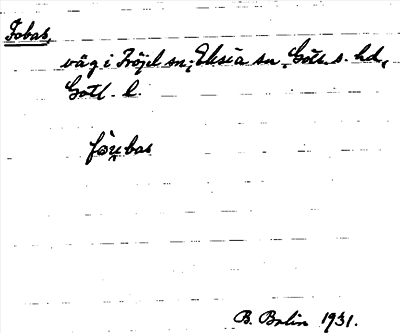 Fobas,
väg i Fröjel sn, Eksta sn, Gotl. s. hd,
Gotl. l.
B. Bolin 1931.